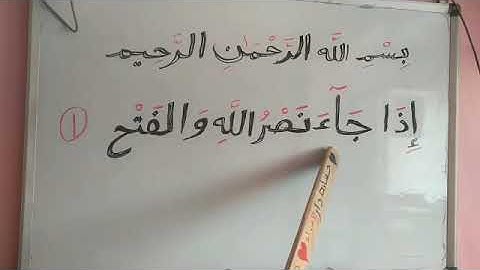 بِسْمِ اللَّهِ الرَّحْمَٰنِ الرَّحِيم
إِذَا جَآءَ نَصْرُ اللَّهِ وَالْفَتْح ①